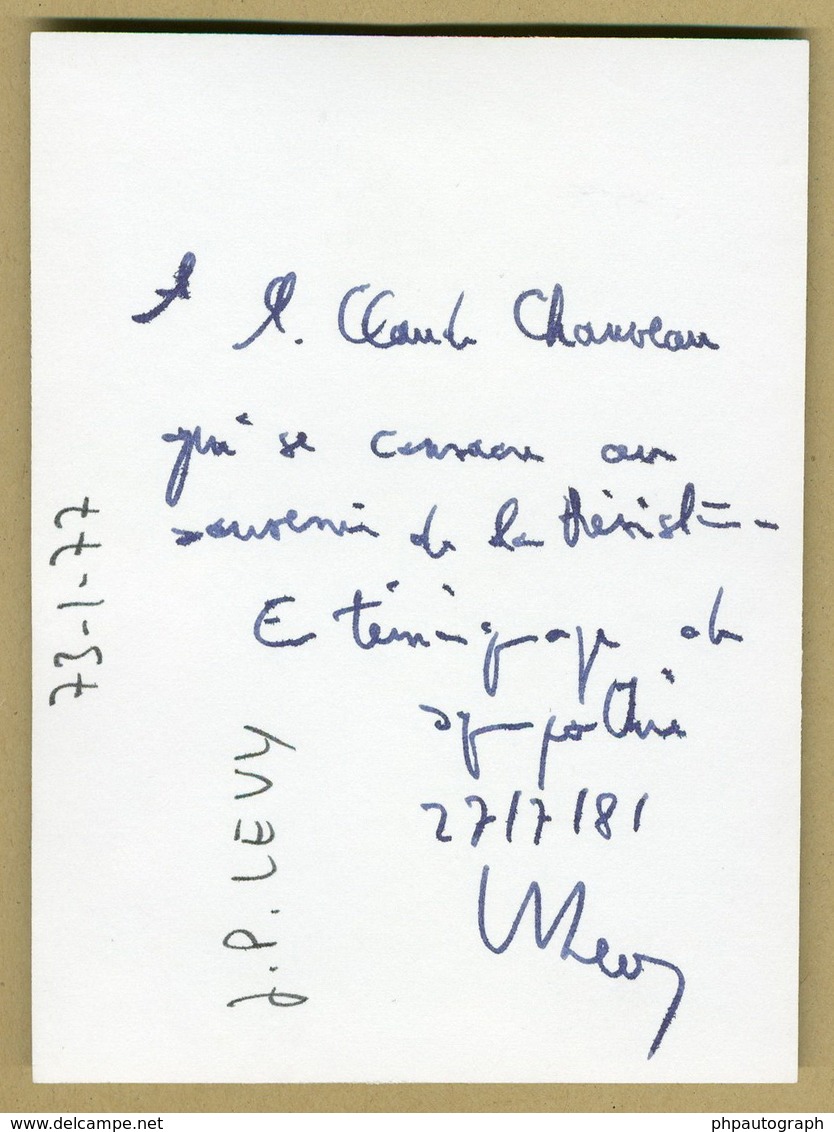 A M. Claude Chauveau
qui se consacre au
souvenir de la Résist
En témoignage de
sympathie
27/7/81
Levy
J.P. LEVY
73-1-77
www.delcampe.net
phpautograph